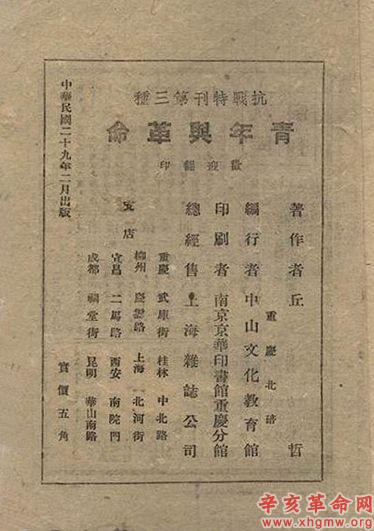 抗戰特刊第三種
青年與革命
歡迎翻印
著作者 丘 哲
重慶北碚
編行者 中山文化教育館
印刷者 南京京華印書館重慶分館
總經售 上海雜誌公司
支店
重慶 武庫街 桂林 中北路
柳州 慶雲路 上海 北河街
宜昌 二馬路 西安 南院門
成都 祠堂街 昆明 華山南路
實價五角
中華民國二十九年二月出版
辛亥革命网
www.xhgmw.org